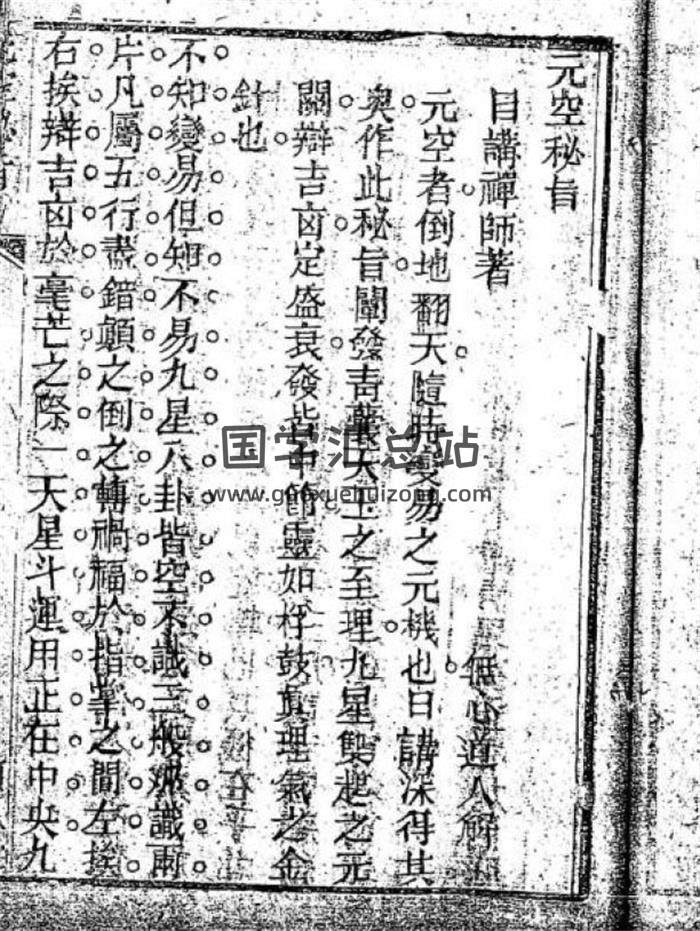 元空秘旨
目講禪師著
無心道人解
元空者倒地翻天隨時變易之元機也目講深得其
奧作此秘旨闡發青囊天玉之至理九星雙起之元
關辯吉凶定盛衰發皆中節靈如桴鼓真理氣之金
針也
不知變易但知不易九星八卦皆空不識三般那識兩
片凡屬五行盡錯顛之倒之轉禍福於指掌之間左挨
右挨辯吉凶於毫芒之際一天星斗運用正在中央九
国学汇总站
www.guoxuehuizong.com